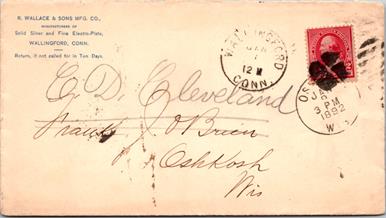 R. WALLACE & SONS MFG. CO.,
MANUFACTURERS OF
Solid Silver and Fine Electro-Plate,
WALLINGFORD, CONN.
Return, if not called for in Ten Days.
WALLINGFORD
JAN
7
12 M
CONN.
OS
JA
3 PM
1892
W
C. D. Cleveland
O'Brien
Oshkosh
Wis